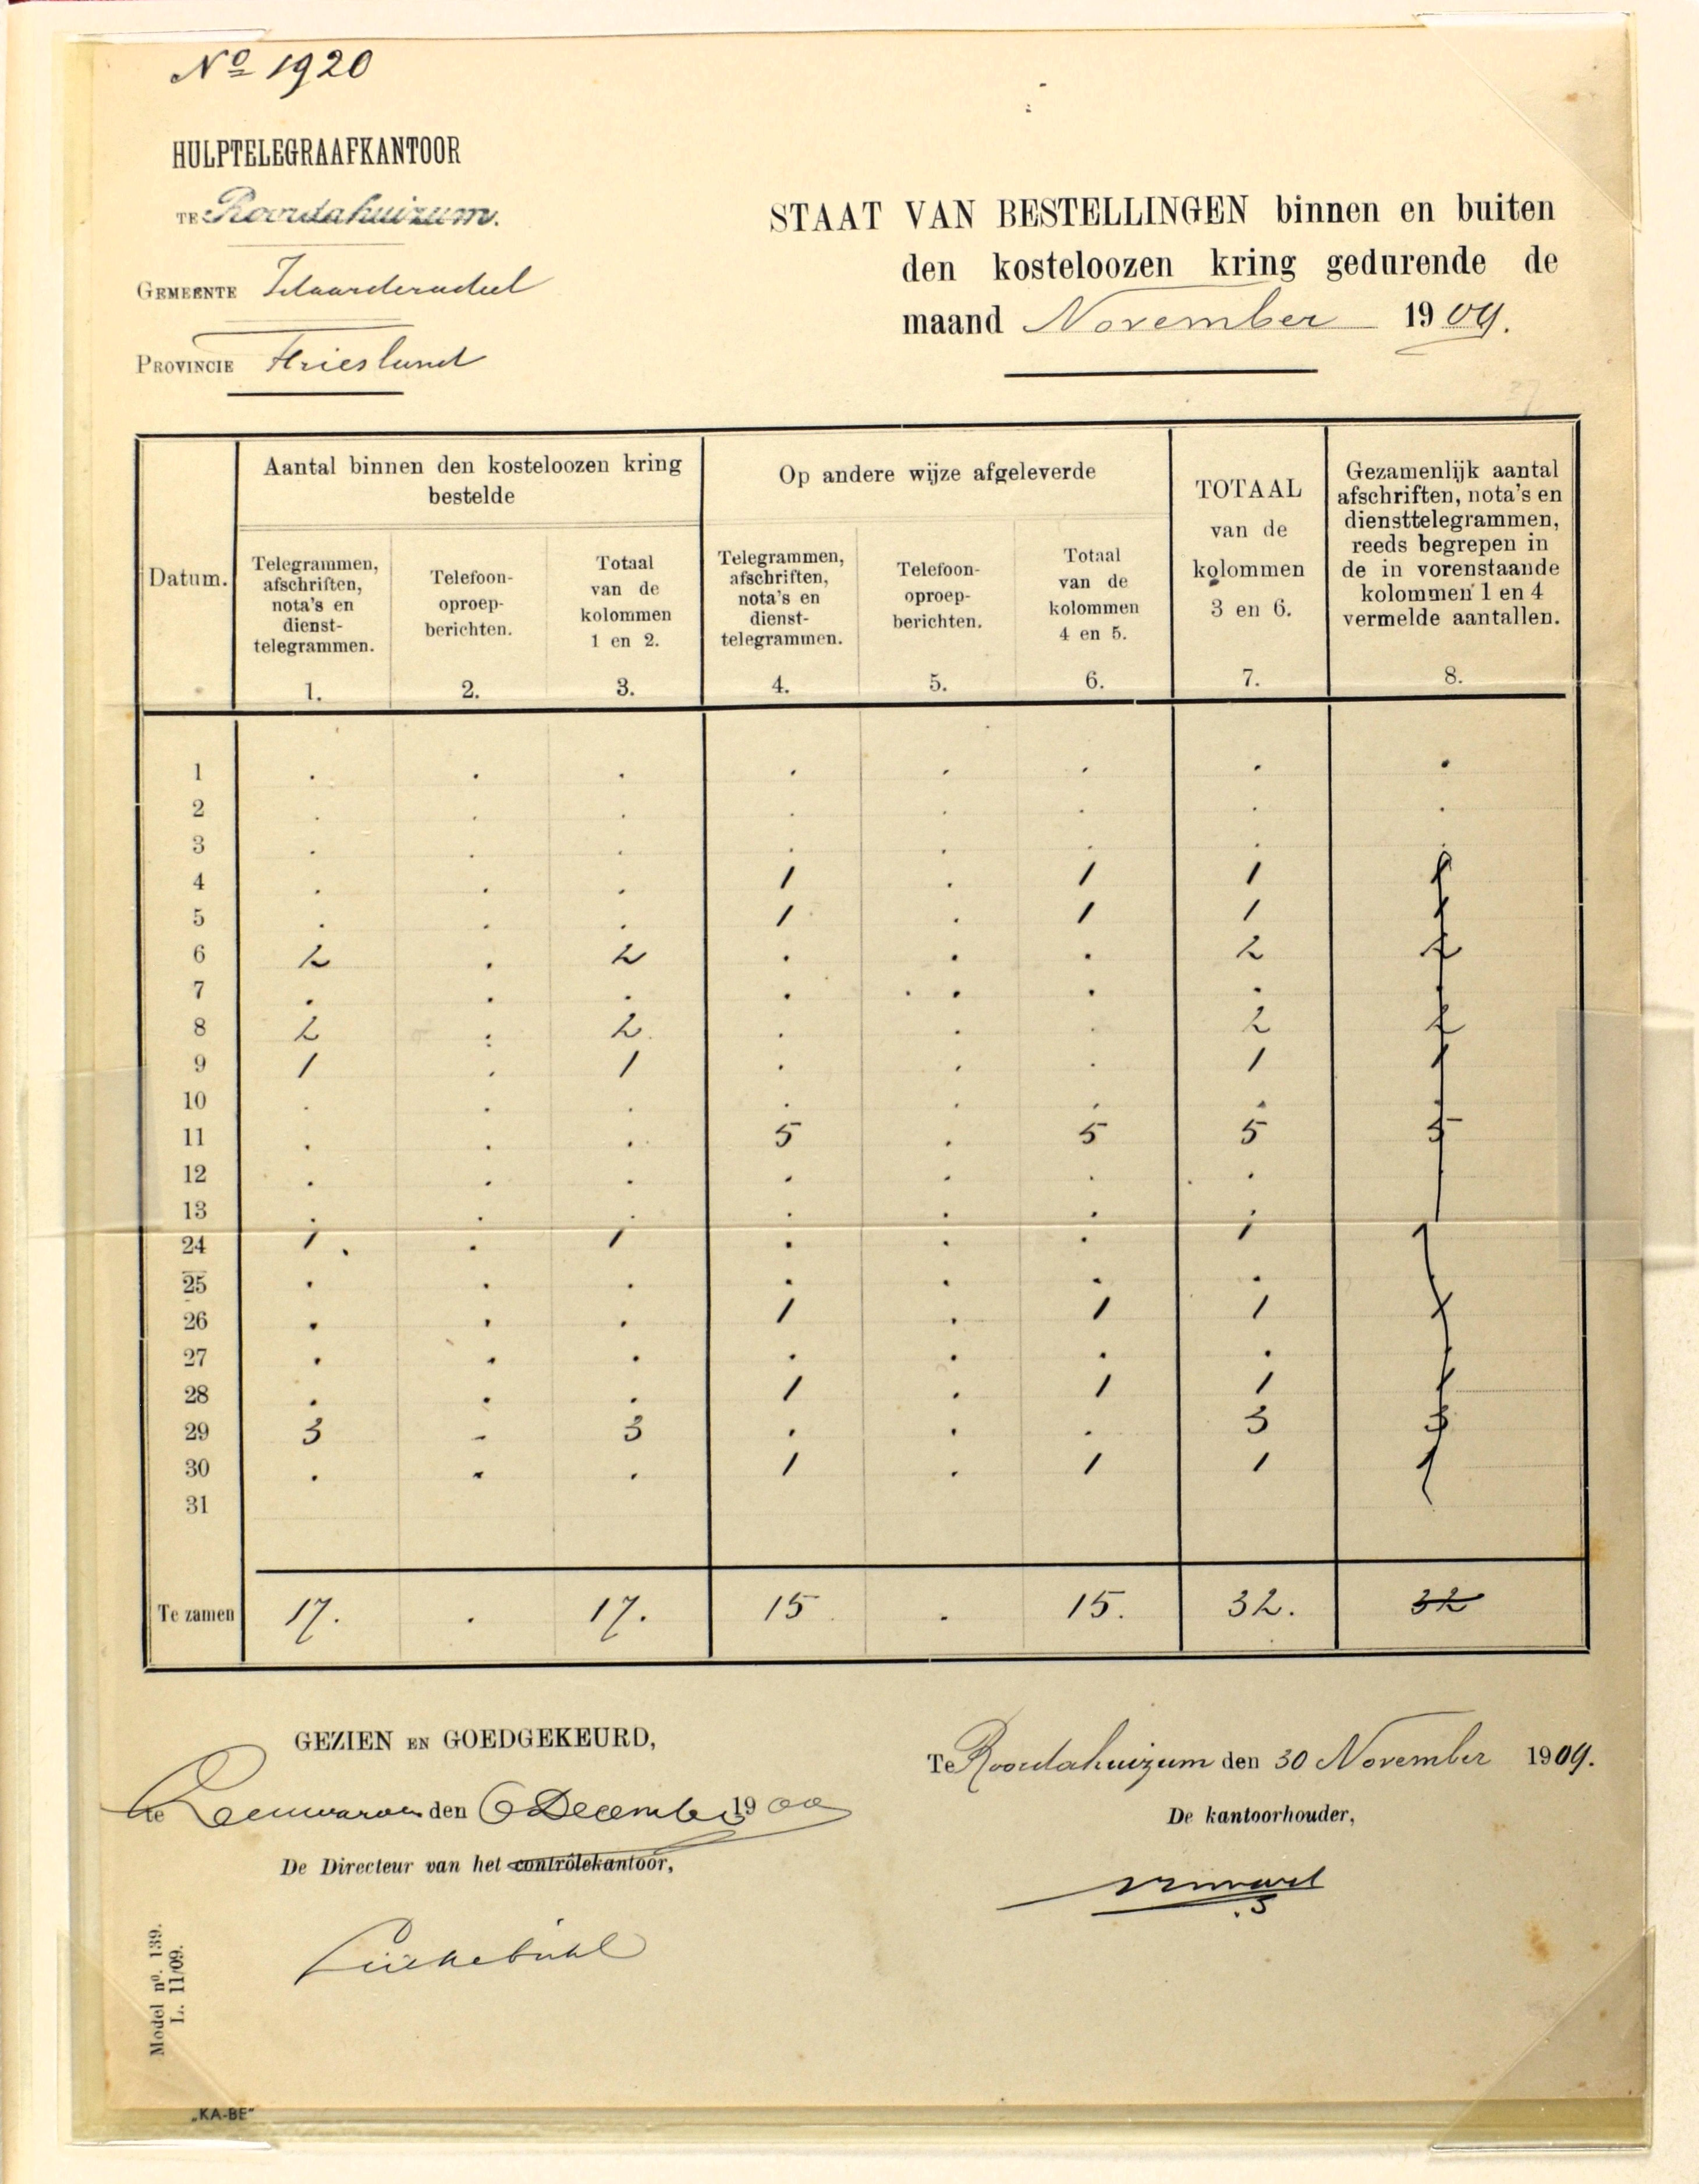 Nº 1920
HULPTELEGRAAFKANTOOR
TE Roordahuizum.
GEMEENTE Idaarderadeel
PROVINCIE Friesland
STAAT VAN BESTELLINGEN binnen en buiten
den kosteloozen kring gedurende de
maand November 1909.
Datum.
Aantal binnen den kosteloozen kring
bestelde
Telegrammen,
afschriften,
nota's en
dienst-
telegrammen.
1.
Telefoon-
oproep-
berichten.
2.
Totaal
van de
kolommen
1 en 2.
3.
Op andere wijze afgeleverde
Telegrammen,
afschriften,
nota's en
dienst-
telegrammen.
4.
Telefoon-
oproep-
berichten.
5.
Totaal
van de
kolommen
4 en 5.
6.
TOTAAL
van de
kolommen
3 en 6.
7.
Gezamenlijk aantal
afschriften, nota's en
diensttelegrammen,
reeds begrepen in
de in vorenstaande
kolommen 1 en 4
vermelde aantallen.
8.
1 . . . . . . . .
2 . . . . . . . .
3 . . . . . . . .
4 . . . 1 . 1 1 1
5 . . . 1 . 1 1 1
6 2 . 2 . . . 2 2
7 . . . . . . . .
8 2 . 2 . . . 2 2
9 1 . 1 . . . 1 1
10 . . . . . . . .
11 . . . 5 . 5 5 5
12 . . . . . . .
13 . . . . . . .
24 1 . 1 . . . 1 1
25 . . . . . . .
26 . . . 1 . 1 1 1
27 . . . . . . .
28 . . . 1 . 1 1 1
29 3 - 3 . . . 3 3
30 . . . 1 . 1 1 1
31
Te zamen 17. . 17. 15 . 15. 32. 32
GEZIEN EN GOEDGEKEURD,
te Leeuwarden den 6 December 1909
De Directeur van het contrôlekantoor,
Te Roordahuizum den 30 November 1909.
De kantoorhouder,
Model nº. 139.
L. 11/09.
„KA-BE"